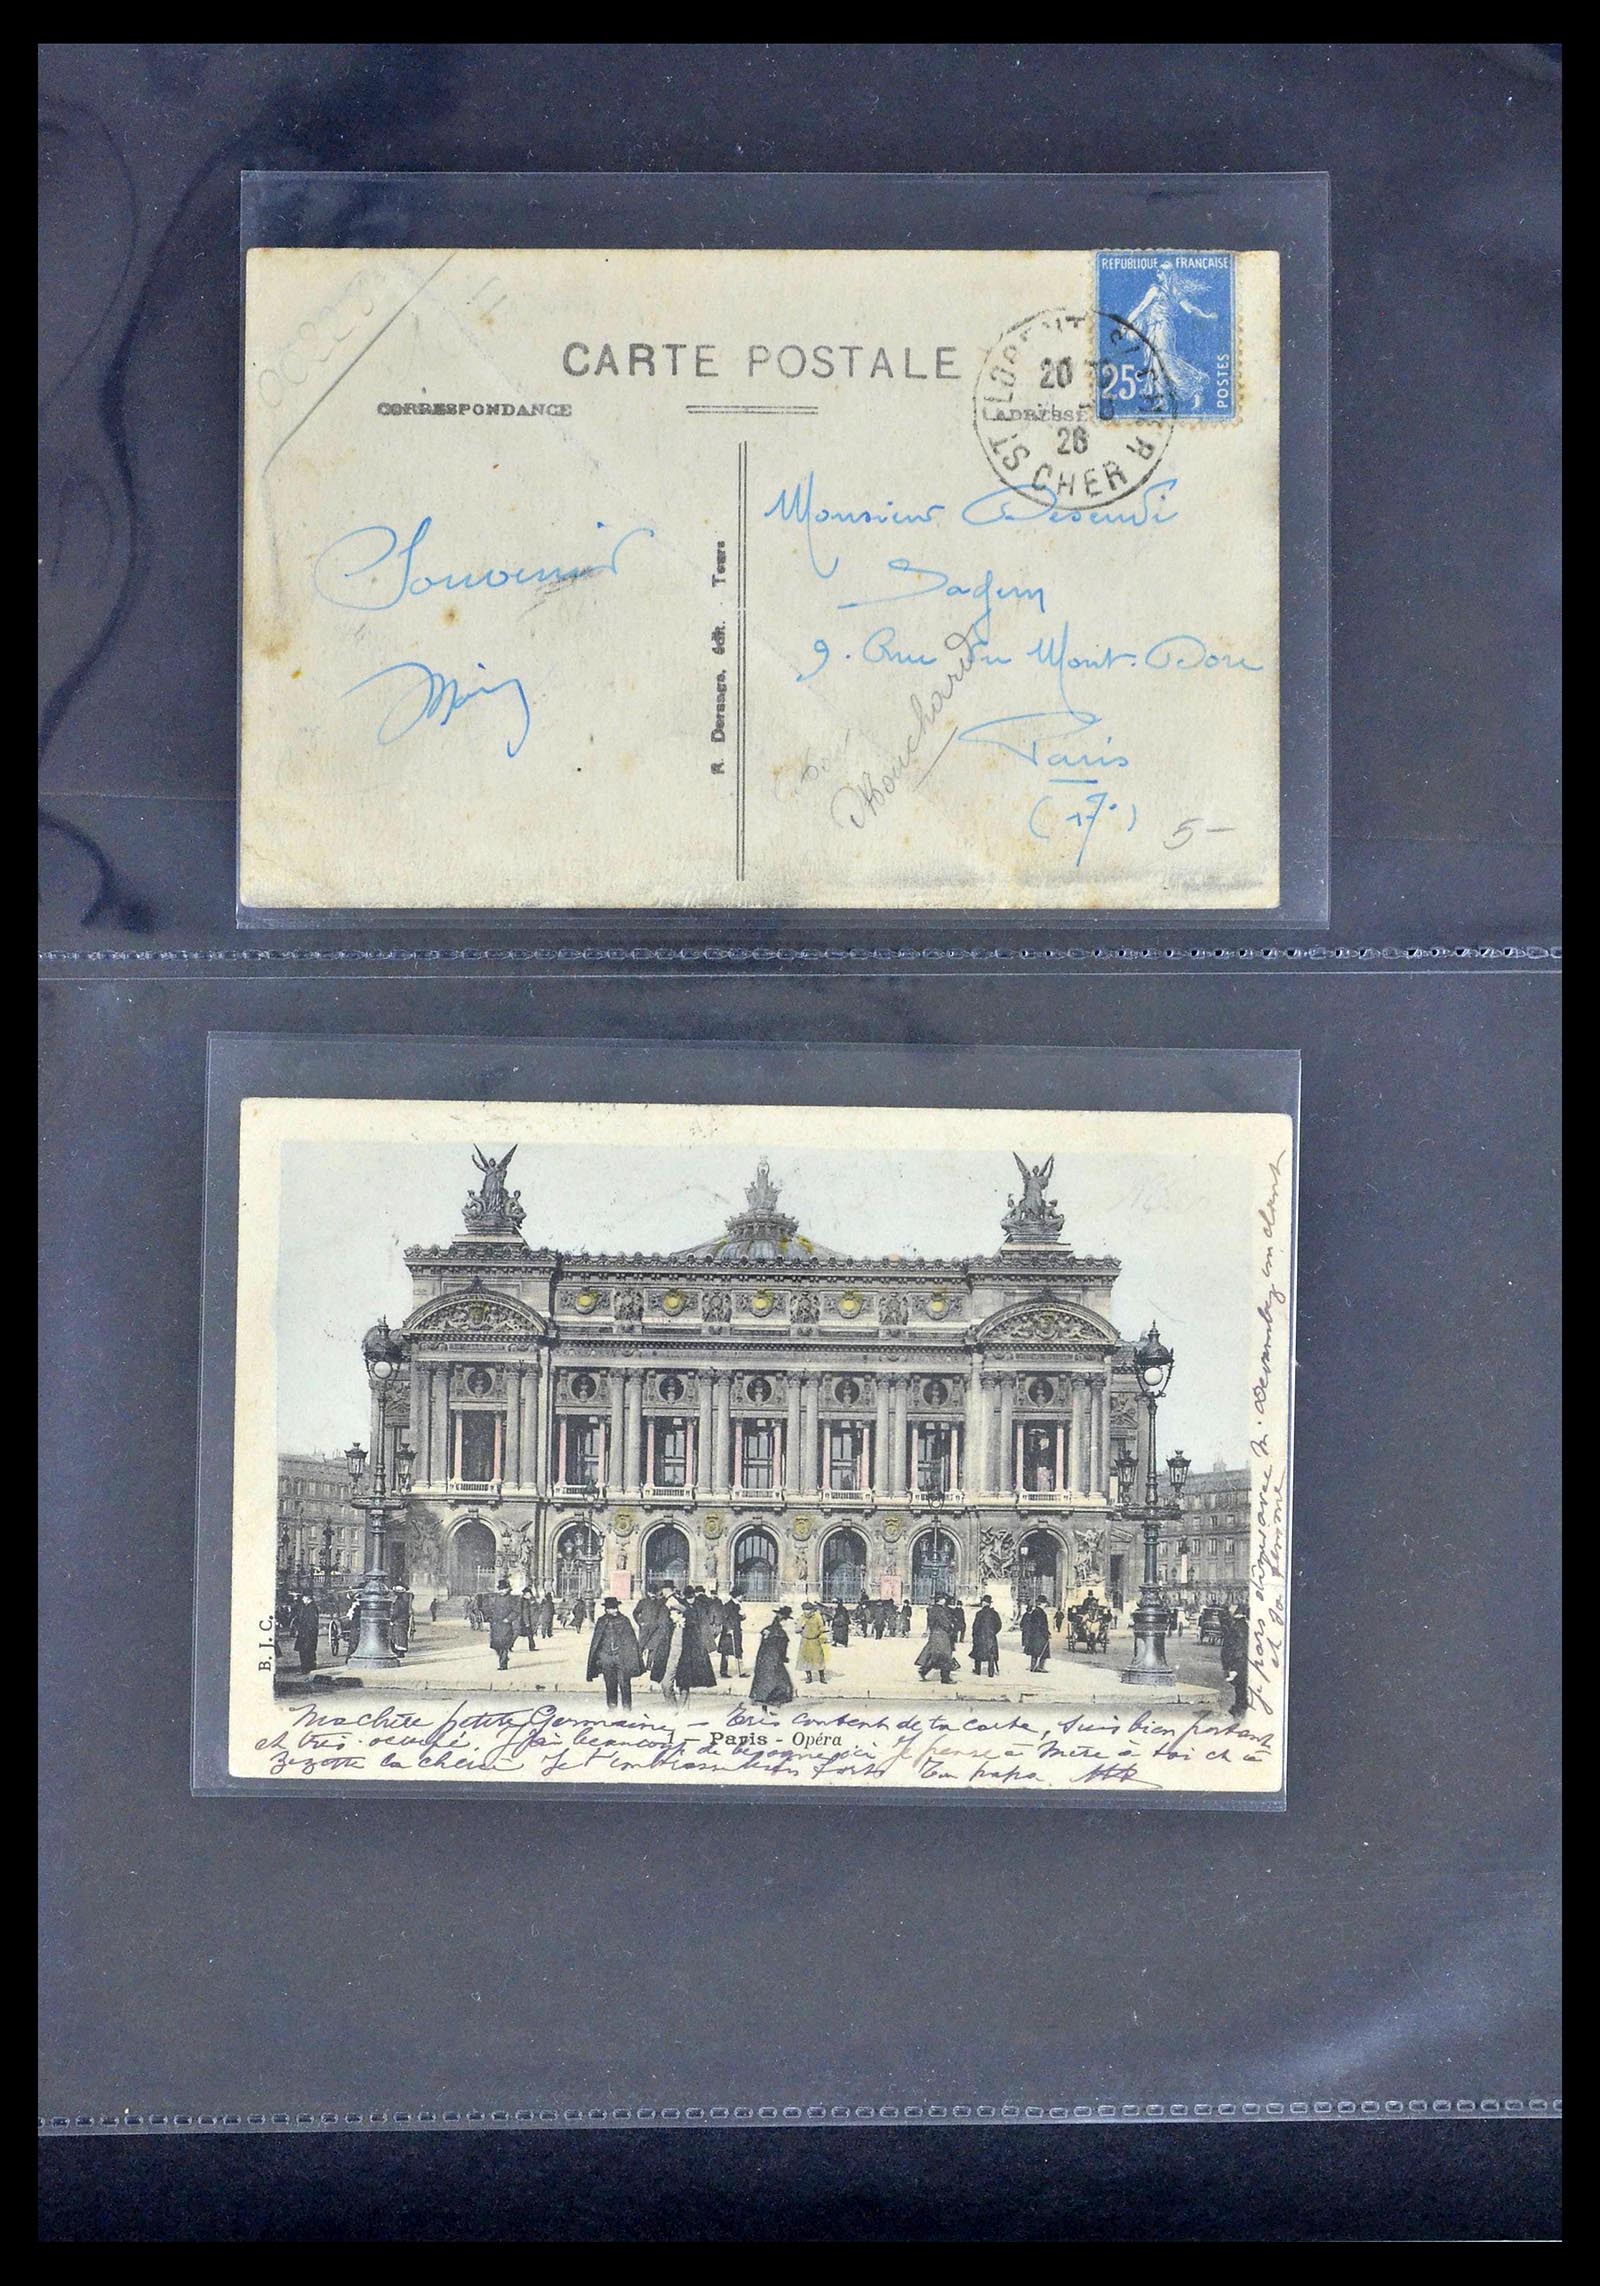 RÉPUBLIQUE FRANÇAISE
25c
POSTES
CARTE POSTALE
CORRESPONDANCE
ADRESSE
20
26
ST CHER
Souvenir
Monsieur
9. Rue du Mont-Dore
Paris
(17e)
5-
R. Dorsaga, édit. Tours
B. J. C.
Ma chère petite Germaine – Très content de ta carte, suis bien portant
et très occupé. J'ai beaucoup de besogne ici Je pense à Mère à toi et à
Zezette la chérie Je t'embrasse bien fort Ton papa
1 - Paris - Opéra
Je pars dîner avec M.
et sa femme